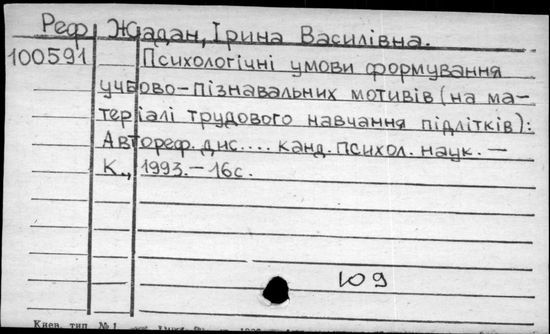 Реф Жадан, Ірина Василівна.
100591 Психологічні умови формування
учбово-пізнавальних мотивів (на ма-
теріалі трудового навчання підлітків):
Автореф. дис.... канд. психол. наук. –
К., 1993. – 16с.
109
Киев. тип. №1